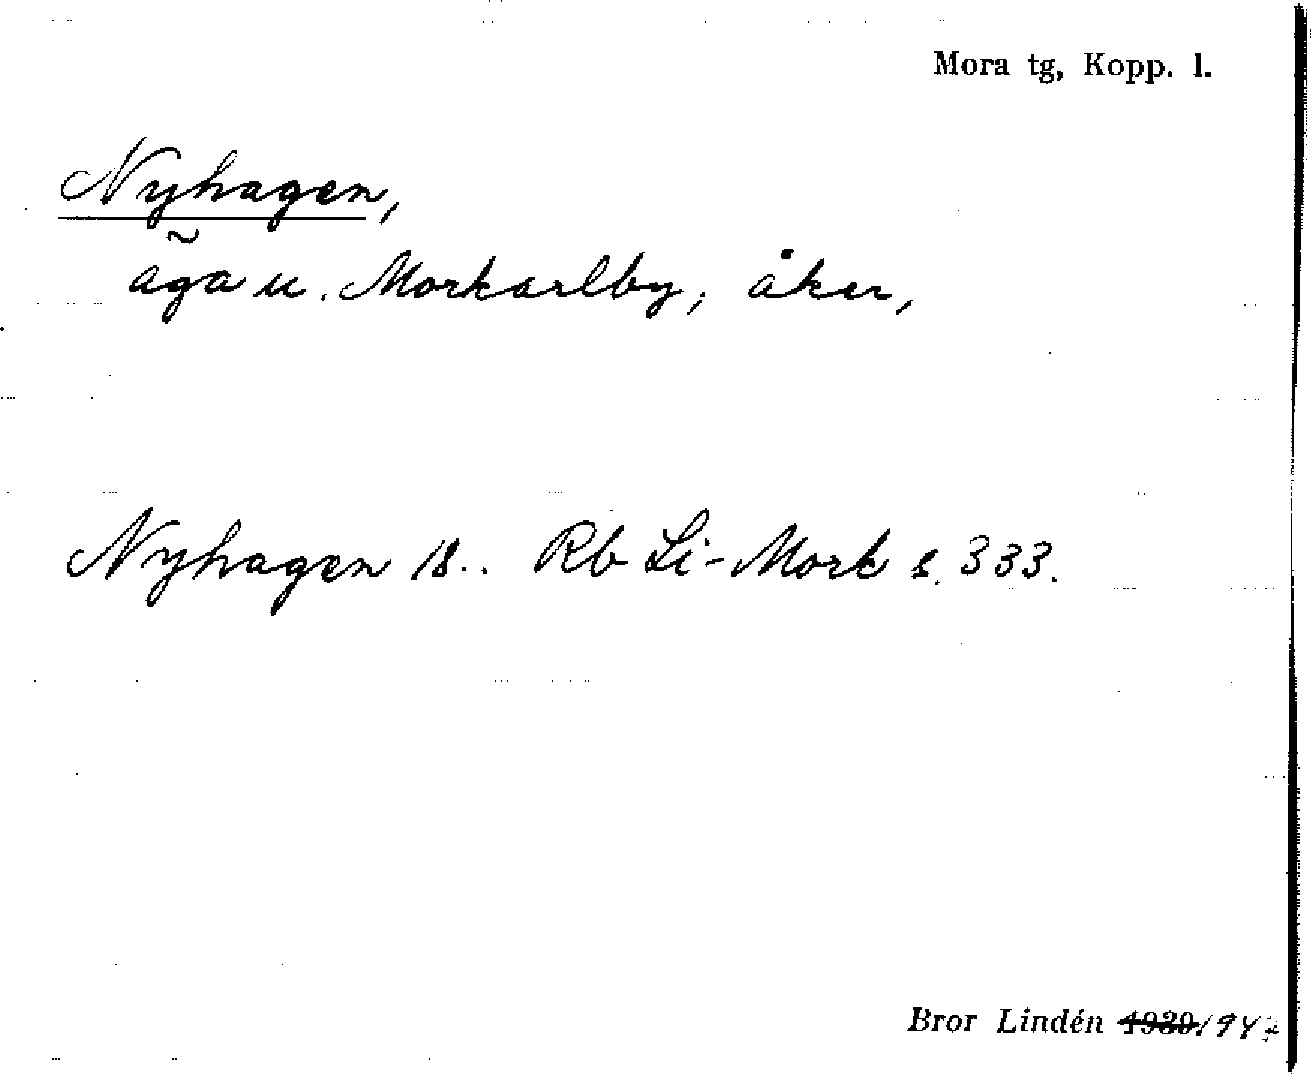 Mora tg, Kopp. l.
Nyhagen,
äga u. Morkarlby, åker,
Nyhagen 18.. Rb Li-Mork s. 333.
Bror Lindén 1930 1947